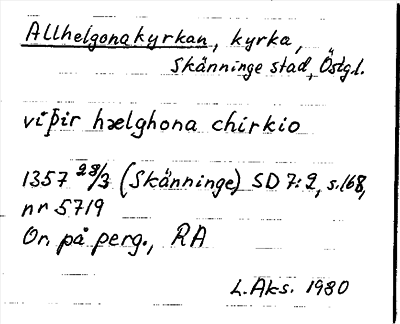 Allhelgonakyrkan, kyrka,
Skänninge stad, Östgl.
viþir hælghona chirkio
1357 28/3 (Skänninge) SD 7:2, s.168,
nr 5719
Or. på perg., RA
L.Aks. 1980